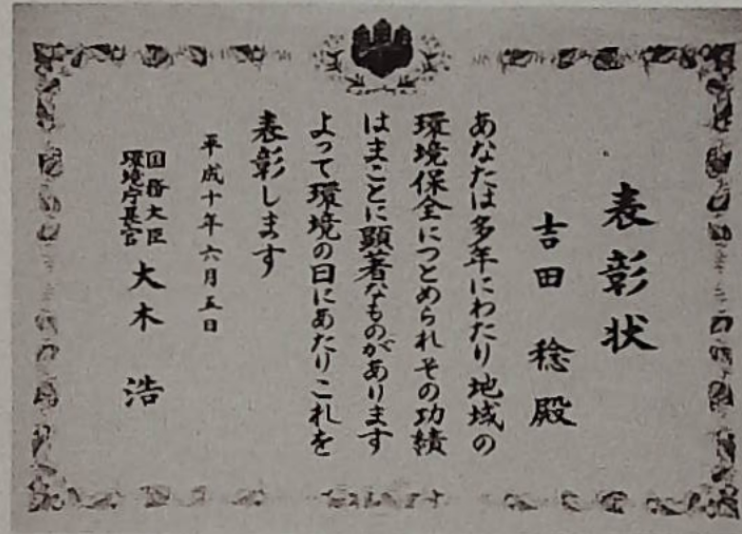 表彰状
吉田稔殿
あなたは多年にわたり地域の
環境保全につとめられその功績
はまことに顕著なものがあります
よって環境の日にあたりこれを
表彰します
平成十年六月五日
国務大臣
環境庁長官
大木浩